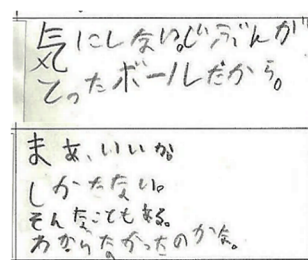 気にしない。じぶんが
とったボールだから。
まぁ、いいか。
しかたない。
そんなこともある。
わからなかったのかな。